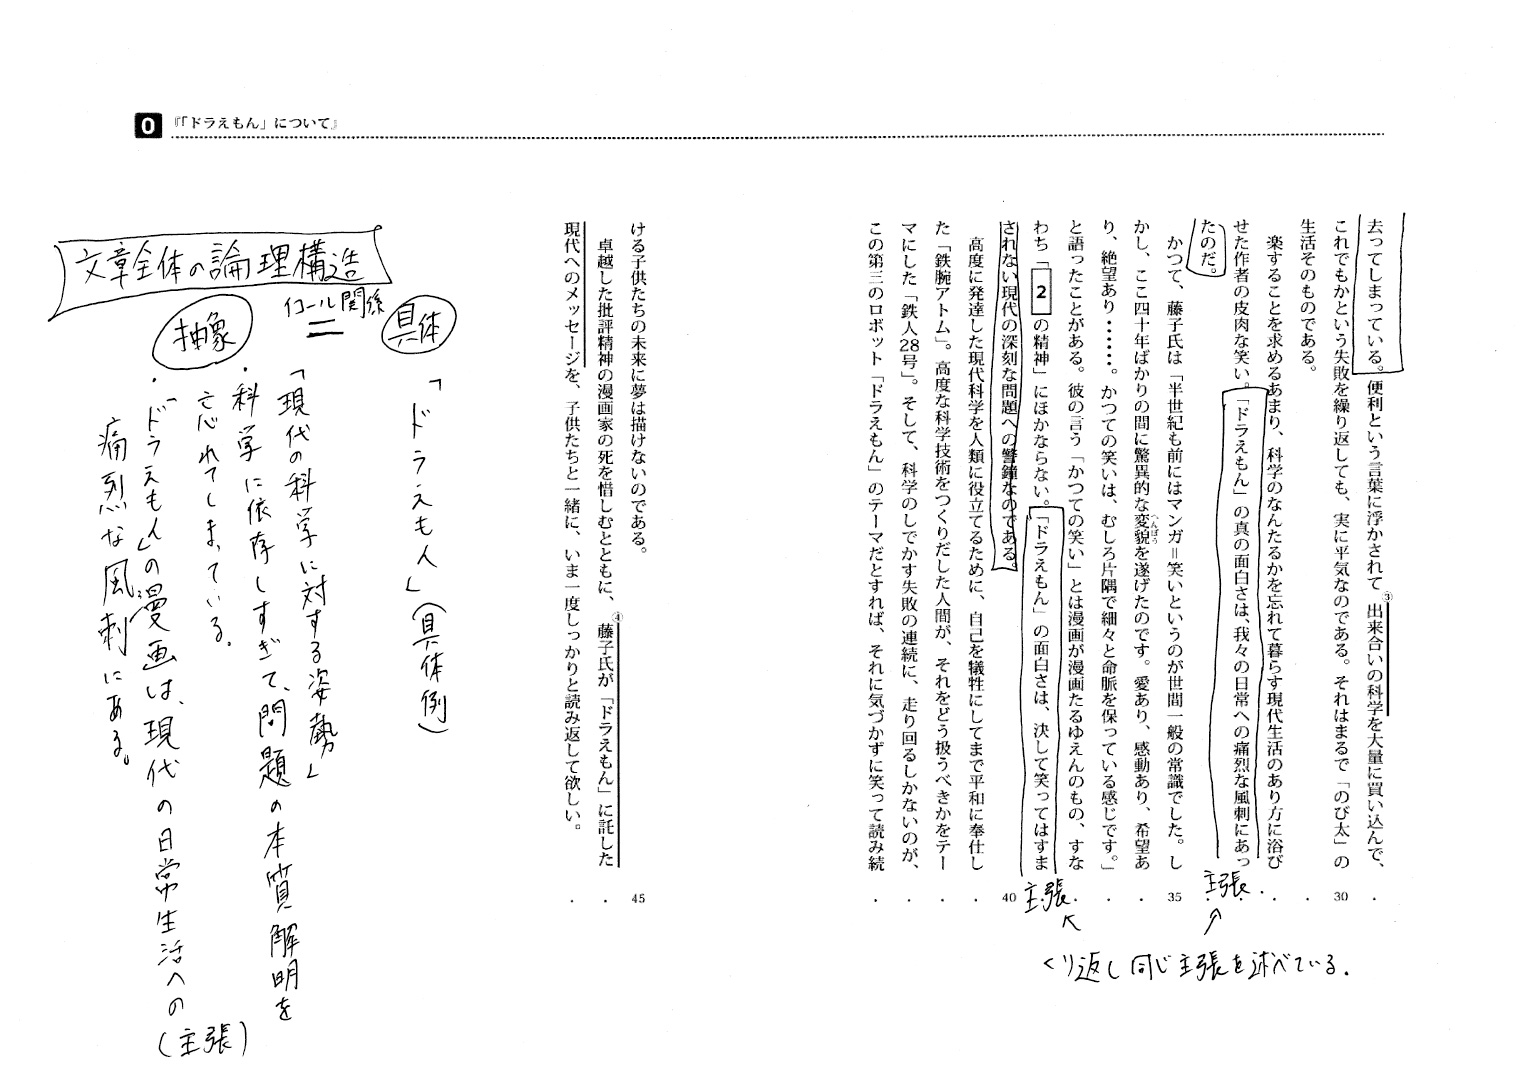 0 『「ドラえもん」について』
去ってしまっている。便利という言葉に浮かされて ⑤出来合いの科学を大量に買い込んで、
これでもかという失敗を繰り返しても、実に平気なのである。それはまるで「のび太」の
生活そのものである。
楽することを求めるあまり、科学のなんたるかを忘れて暮らす現代生活のあり方に浴び
せた作者の皮肉な笑い。「ドラえもん」の真の面白さは、我々の日常への痛烈な風刺にあっ
たのだ。
かつて、藤子氏は「半世紀も前にはマンガ＝笑いというのが世間一般の常識でした。し
かし、ここ四十年ばかりの間に驚異的な変貌へんぼうを遂げたのです。愛あり、感動あり、希望あ
り、絶望あり……。かつての笑いは、むしろ片隅で細々と命脈を保っている感じです。」
と語ったことがある。彼の言う「かつての笑い」とは漫画が漫画たるゆえんのもの、すな
わち「 2 の精神」にほかならない。「ドラえもん」の面白さは、決して笑ってはすま
されない現代の深刻な問題への警鐘なのである。
高度に発達した現代科学を人類に役立てるために、自己を犠牲にしてまで平和に奉仕し
た「鉄腕アトム」。高度な科学技術をつくりだした人間が、それをどう扱うべきかをテー
マにした「鉄人28号」。そして、科学のしでかす失敗の連続に、走り回るしかないのが、
この第三のロボット「ドラえもん」のテーマだとすれば、それに気づかずに笑って読み続
30
35
40
主張
主張
くり返し同じ主張を述べている.
ける子供たちの未来に夢は描けないのである。
卓越した批評精神の漫画家の死を惜しむとともに、④藤子氏が「ドラえもん」に託した
現代へのメッセージを、子供たちと一緒に、いま一度しっかりと読み返して欲しい。
45
文章全体の論理構造
具体
イコール関係
＝
抽象
「ドラえもん」(具体例)
「現代の科学に対する姿勢」
・科学に依存しすぎて、問題の本質解明を
忘れてしまっている.
・「ドラえもん」の漫画は、現代の日常生活への
痛烈な風刺にある。
(主張)